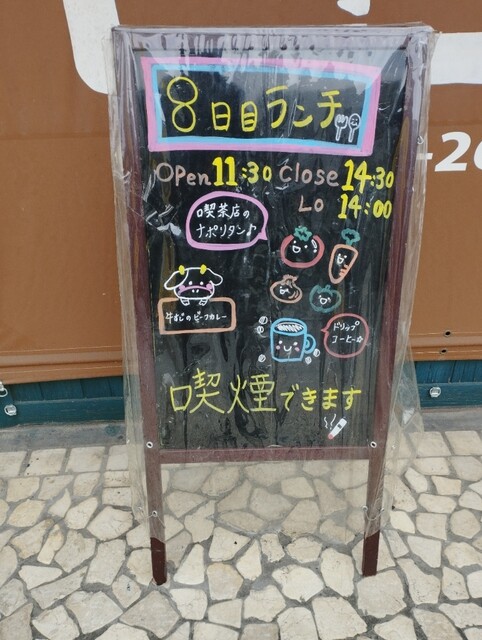 8日目ランチ
Open 11:30 Close 14:30
Lo 14:00
喫茶店の
ナポリタン♪
牛すじのビーフカレー
ドリップ
コーヒー☆
喫煙できます
-20